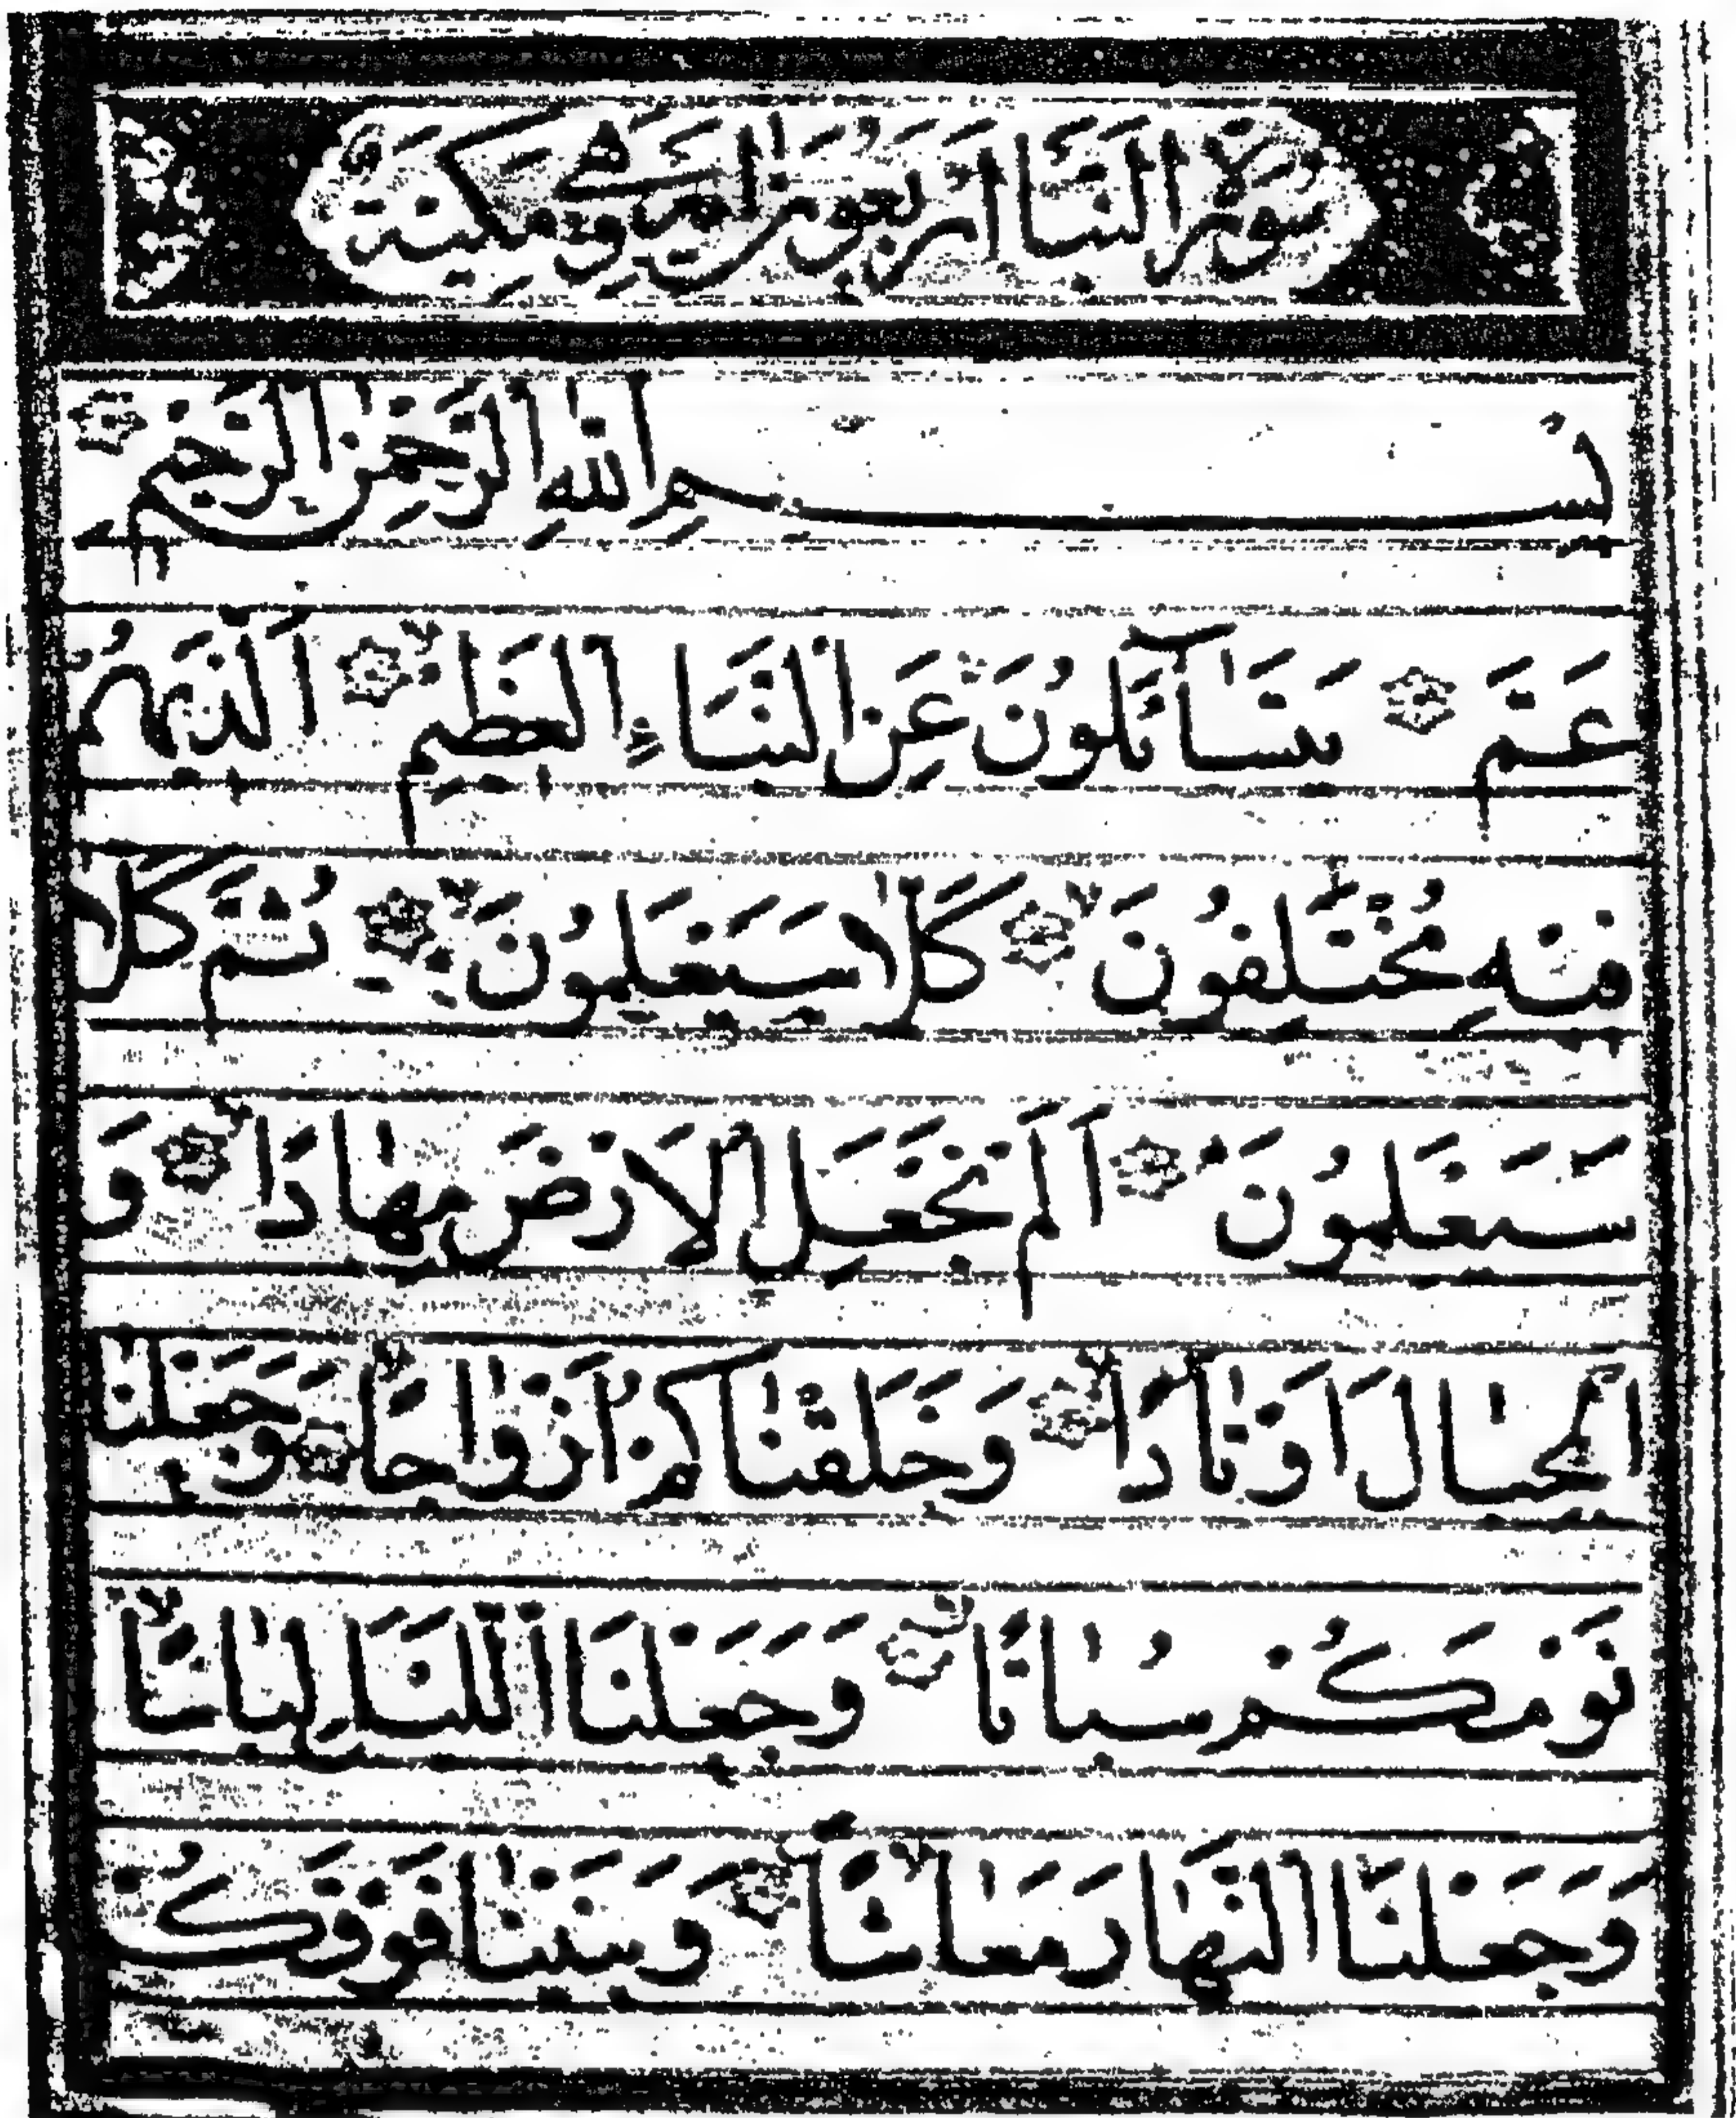 سورة النبأ اربعون اية وهي مكية
بِسْمِ اللهِ الرَّحْمٰنِ الرَّحِيمِ
عَمَّ يَتَسَآءَلُونَ عَنِ النَّبَاءِ الْعَظِيمِ اَلَّذِي هُمْ
فِيهِ مُخْتَلِفُونَ كَلَّا سَيَعْلَمُونَ ثُمَّ كَلَّا
سَيَعْلَمُونَ اَلَمْ نَجْعَلِ الْاَرْضَ مِهَادًا وَ
الْجِبَالَ اَوْتَادًا وَخَلَقْنَاكُمْ اَزْوَاجًا وَجَعَلْنَا
نَوْمَكُمْ سُبَاتًا وَجَعَلْنَا اللَّيْلَ لِبَاسًا
وَجَعَلْنَا النَّهَارَ مَعَاشًا وَبَنَيْنَا فَوْقَكُمْ